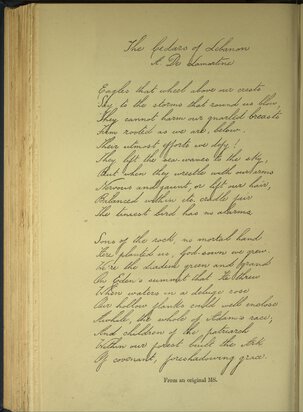 The Cedars of Lebanon
A. De Lamartine
Eagles that wheel above our crests
Say to the storms that round us blow
They cannot harm our gnarled breasts
Firm rooted as we are, below.
Their utmost efforts we defy!
They lift the sea waves to the sky,
But when they wrestle with our arms
Nervous and gaunt, or lift our hair,
Balanced within its cradle fair
The tiniest bird has no alarms
Sons of the rock, no mortal hand
Here planted us, God-sown we grew.
We're the diadem green and grand
On Eden's summit that He threw
When waters in a deluge rose
Our hollow flanks could well enclose
Awhile, the whole of Adam's race,
And children of the patriarch
Within our forest built the Ark
Of covenant, foreshadowing grace.
From an original MS.